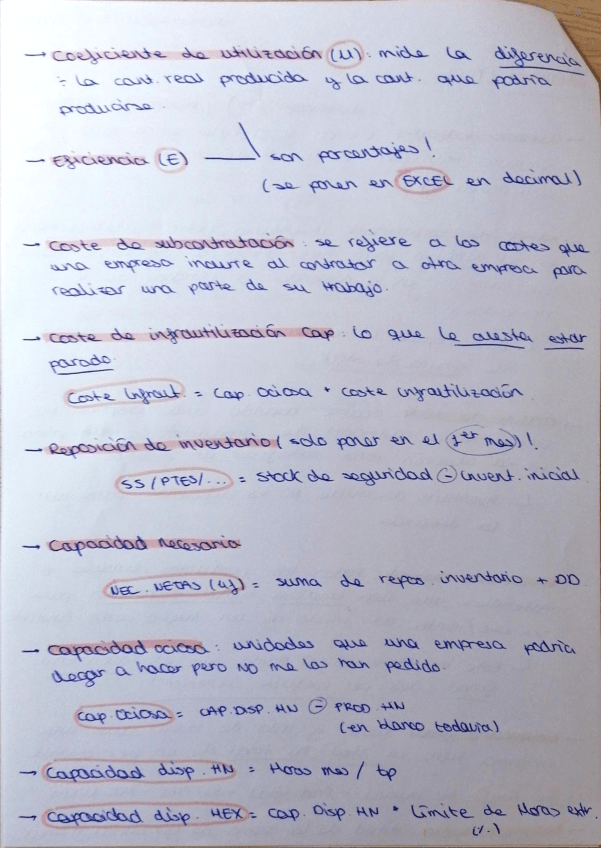 → Coeficiente de utilización (U): mide la diferencia
÷ la cant. real producida y la cant. que podría
producirse.
→ Eficiencia (E) son porcentajes!
(se ponen en EXCEL en decimal)
→ Coste de subcontratación: se refiere a los costes que
una empresa incurre al contratar a otra empresa para
realizar una parte de su trabajo.
→ Coste de infrautilización Cap: lo que le cuesta estar
parado.
Coste Infraut. = Cap. Ociosa * coste infrautilización.
→ Reposición de inventario (solo poner en el 1er mes)!
SS/PTES/... = Stock de seguridad - invent. inicial
→ Capacidad necesaria
NEC. NETAS (uf) = suma de repos. inventario + DD
→ Capacidad ociosa: unidades que una empresa podría
llegar a hacer pero NO me las han pedido.
Cap. Ociosa = CAP. DISP. HN - PROD. HN
(en blanco todavía)
→ Capacidad disp. HN = Horas mes / tp
→ Capacidad disp. HEX = Cap. Disp HN * Límite de Horas extr.
(%)